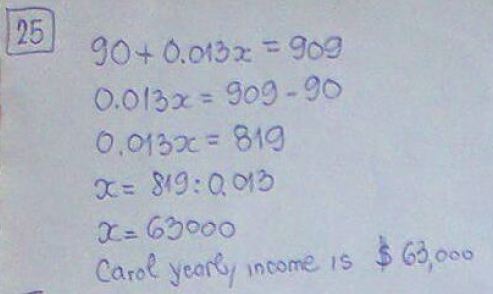 25
90 + 0.013x = 909
0.013x = 909 - 90
0.013x = 819
x = 819:0.013
x = 63000
Carol yearly income is $ 63,000